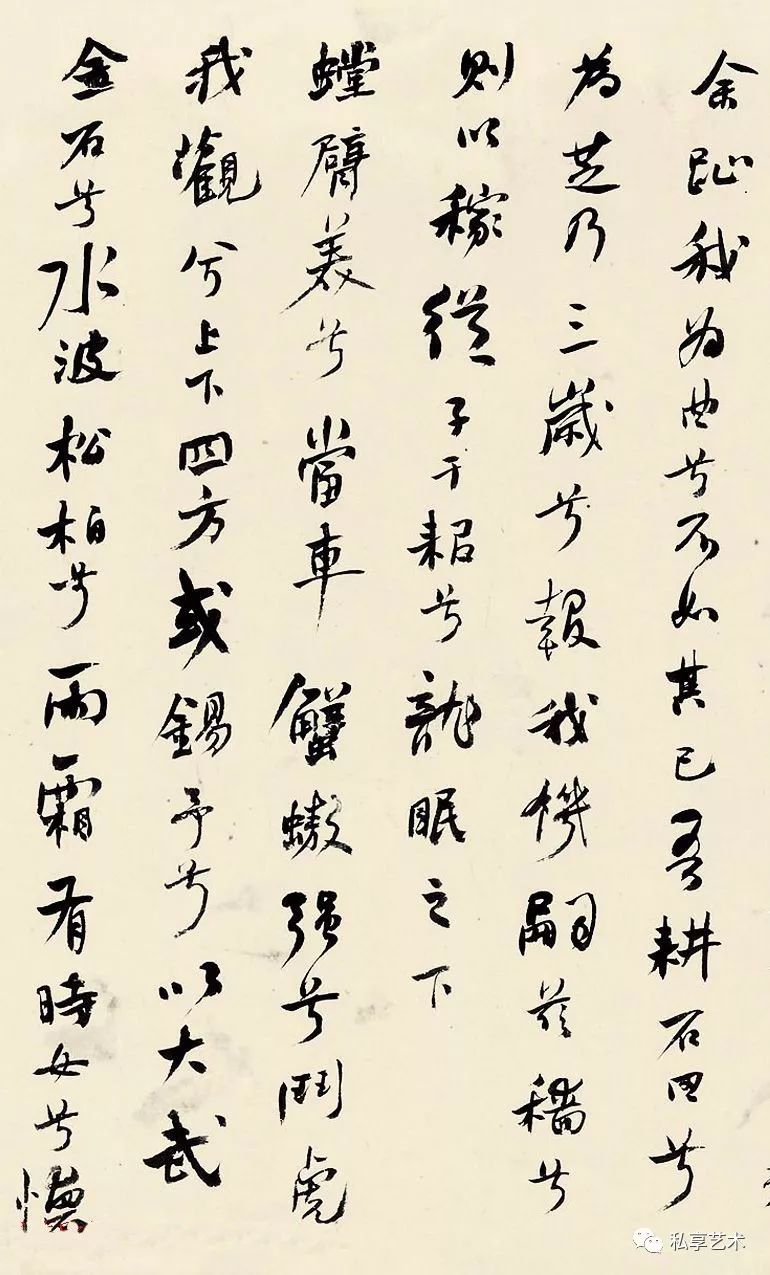 余我为曲兮不如其已吾耕石田兮
為芝乃三歲兮報我機嗣茲穡兮
則以稼從子于耜兮龍眠之下
螳臂美兮當車蟹螯强兮鬥虎
我觀兮上下四方或錫予兮以大武
金石兮水波松柏兮雨霜有時女兮
私享艺术